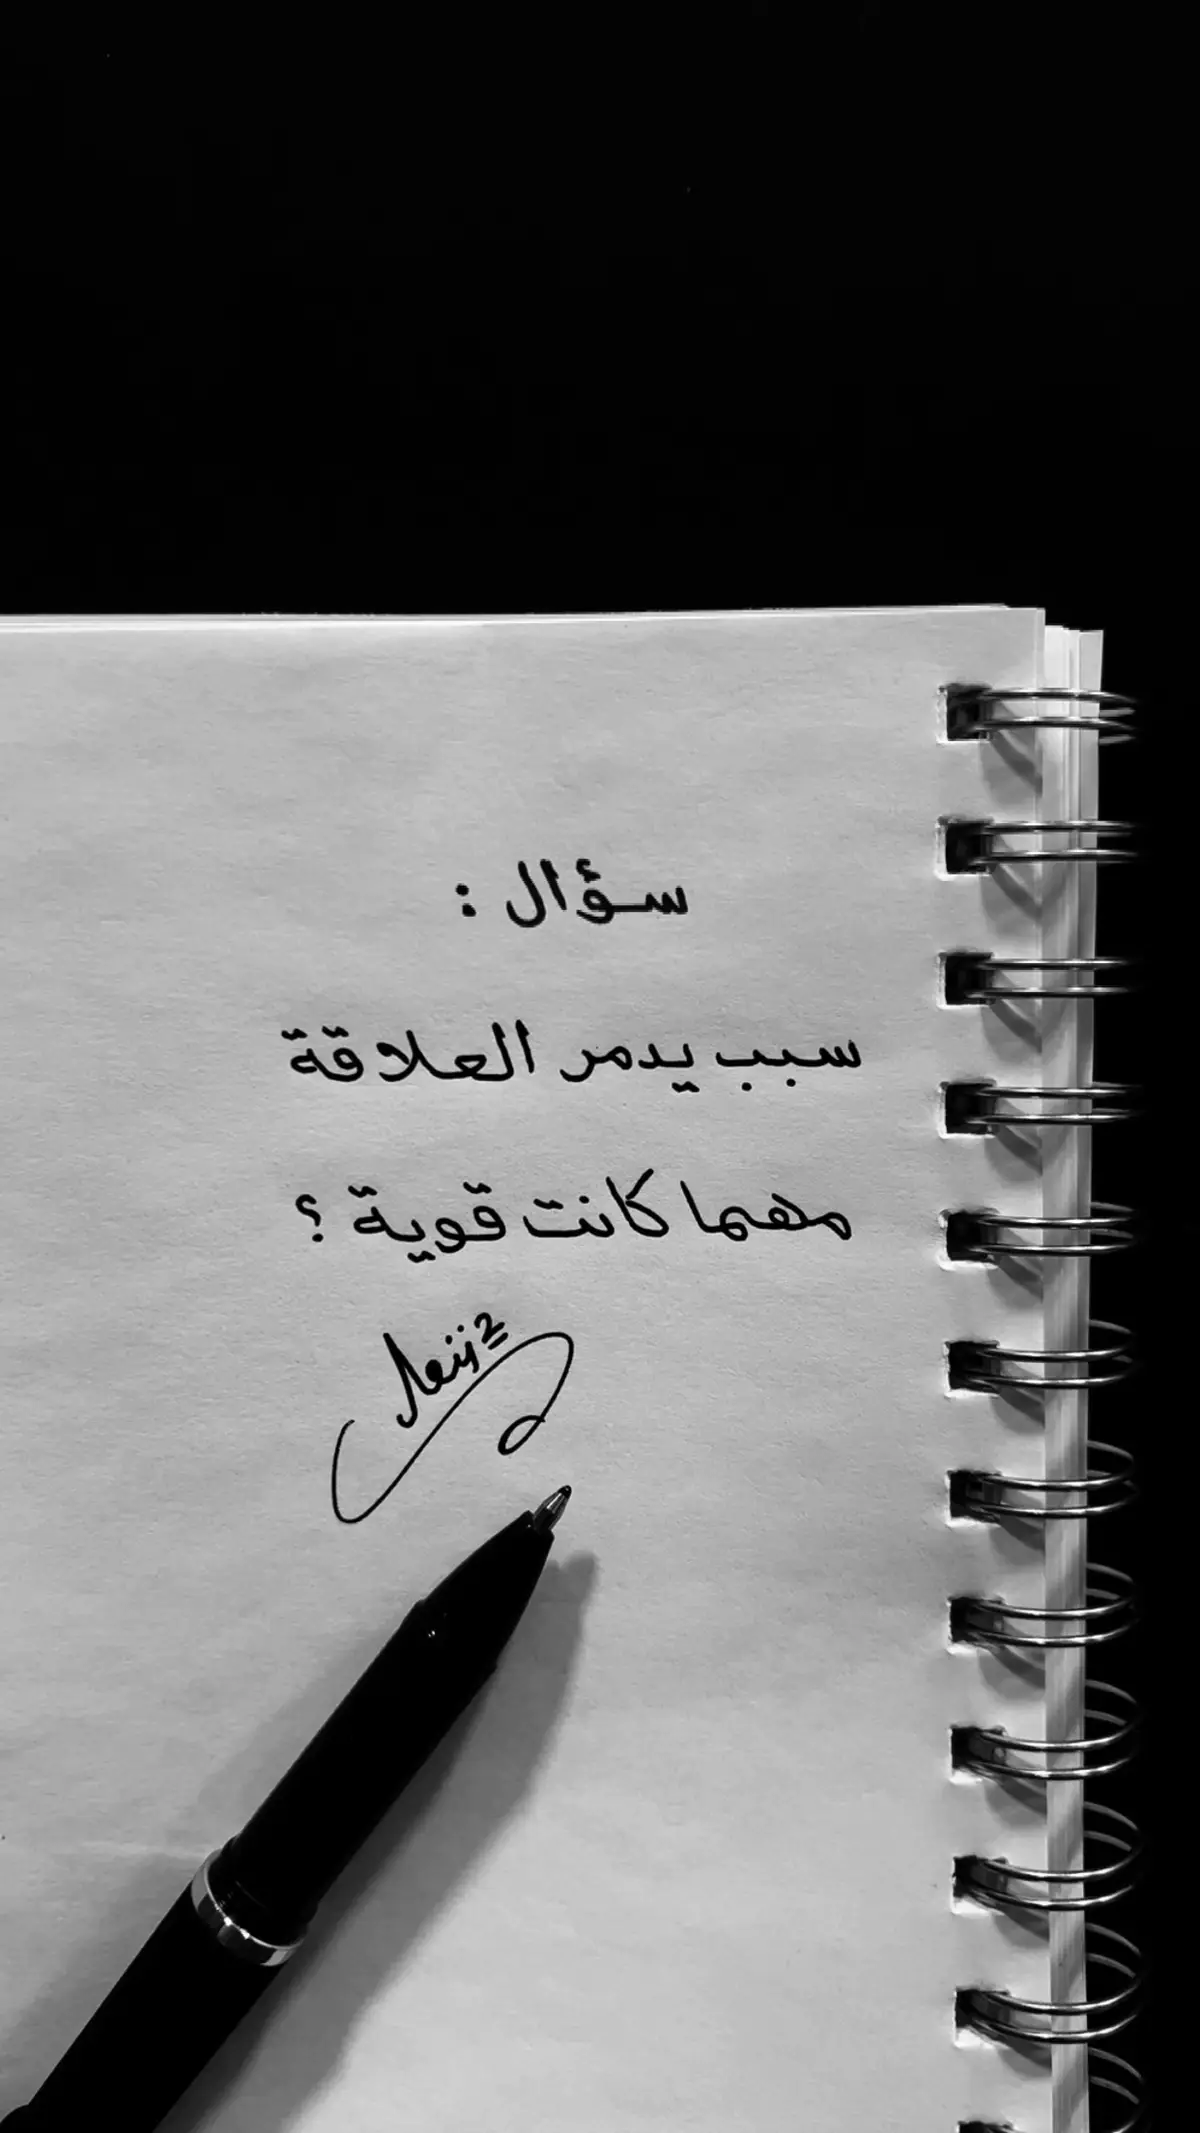 سؤال :
سبب يدمر العلاقة
مهما كانت قوية ؟